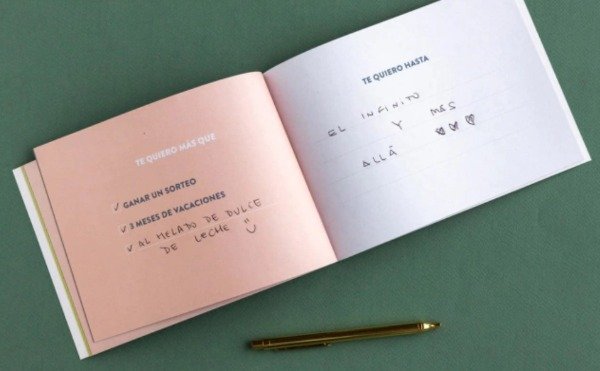 TE QUIERO MÁS QUE
✓ GANAR UN SORTEO
✓ 3 MESES DE VACACIONES
✓ AL HELADO DE DULCE
DE LECHE
TE QUIERO HASTA
EL INFINITO
Y MÁS
ALLÁ